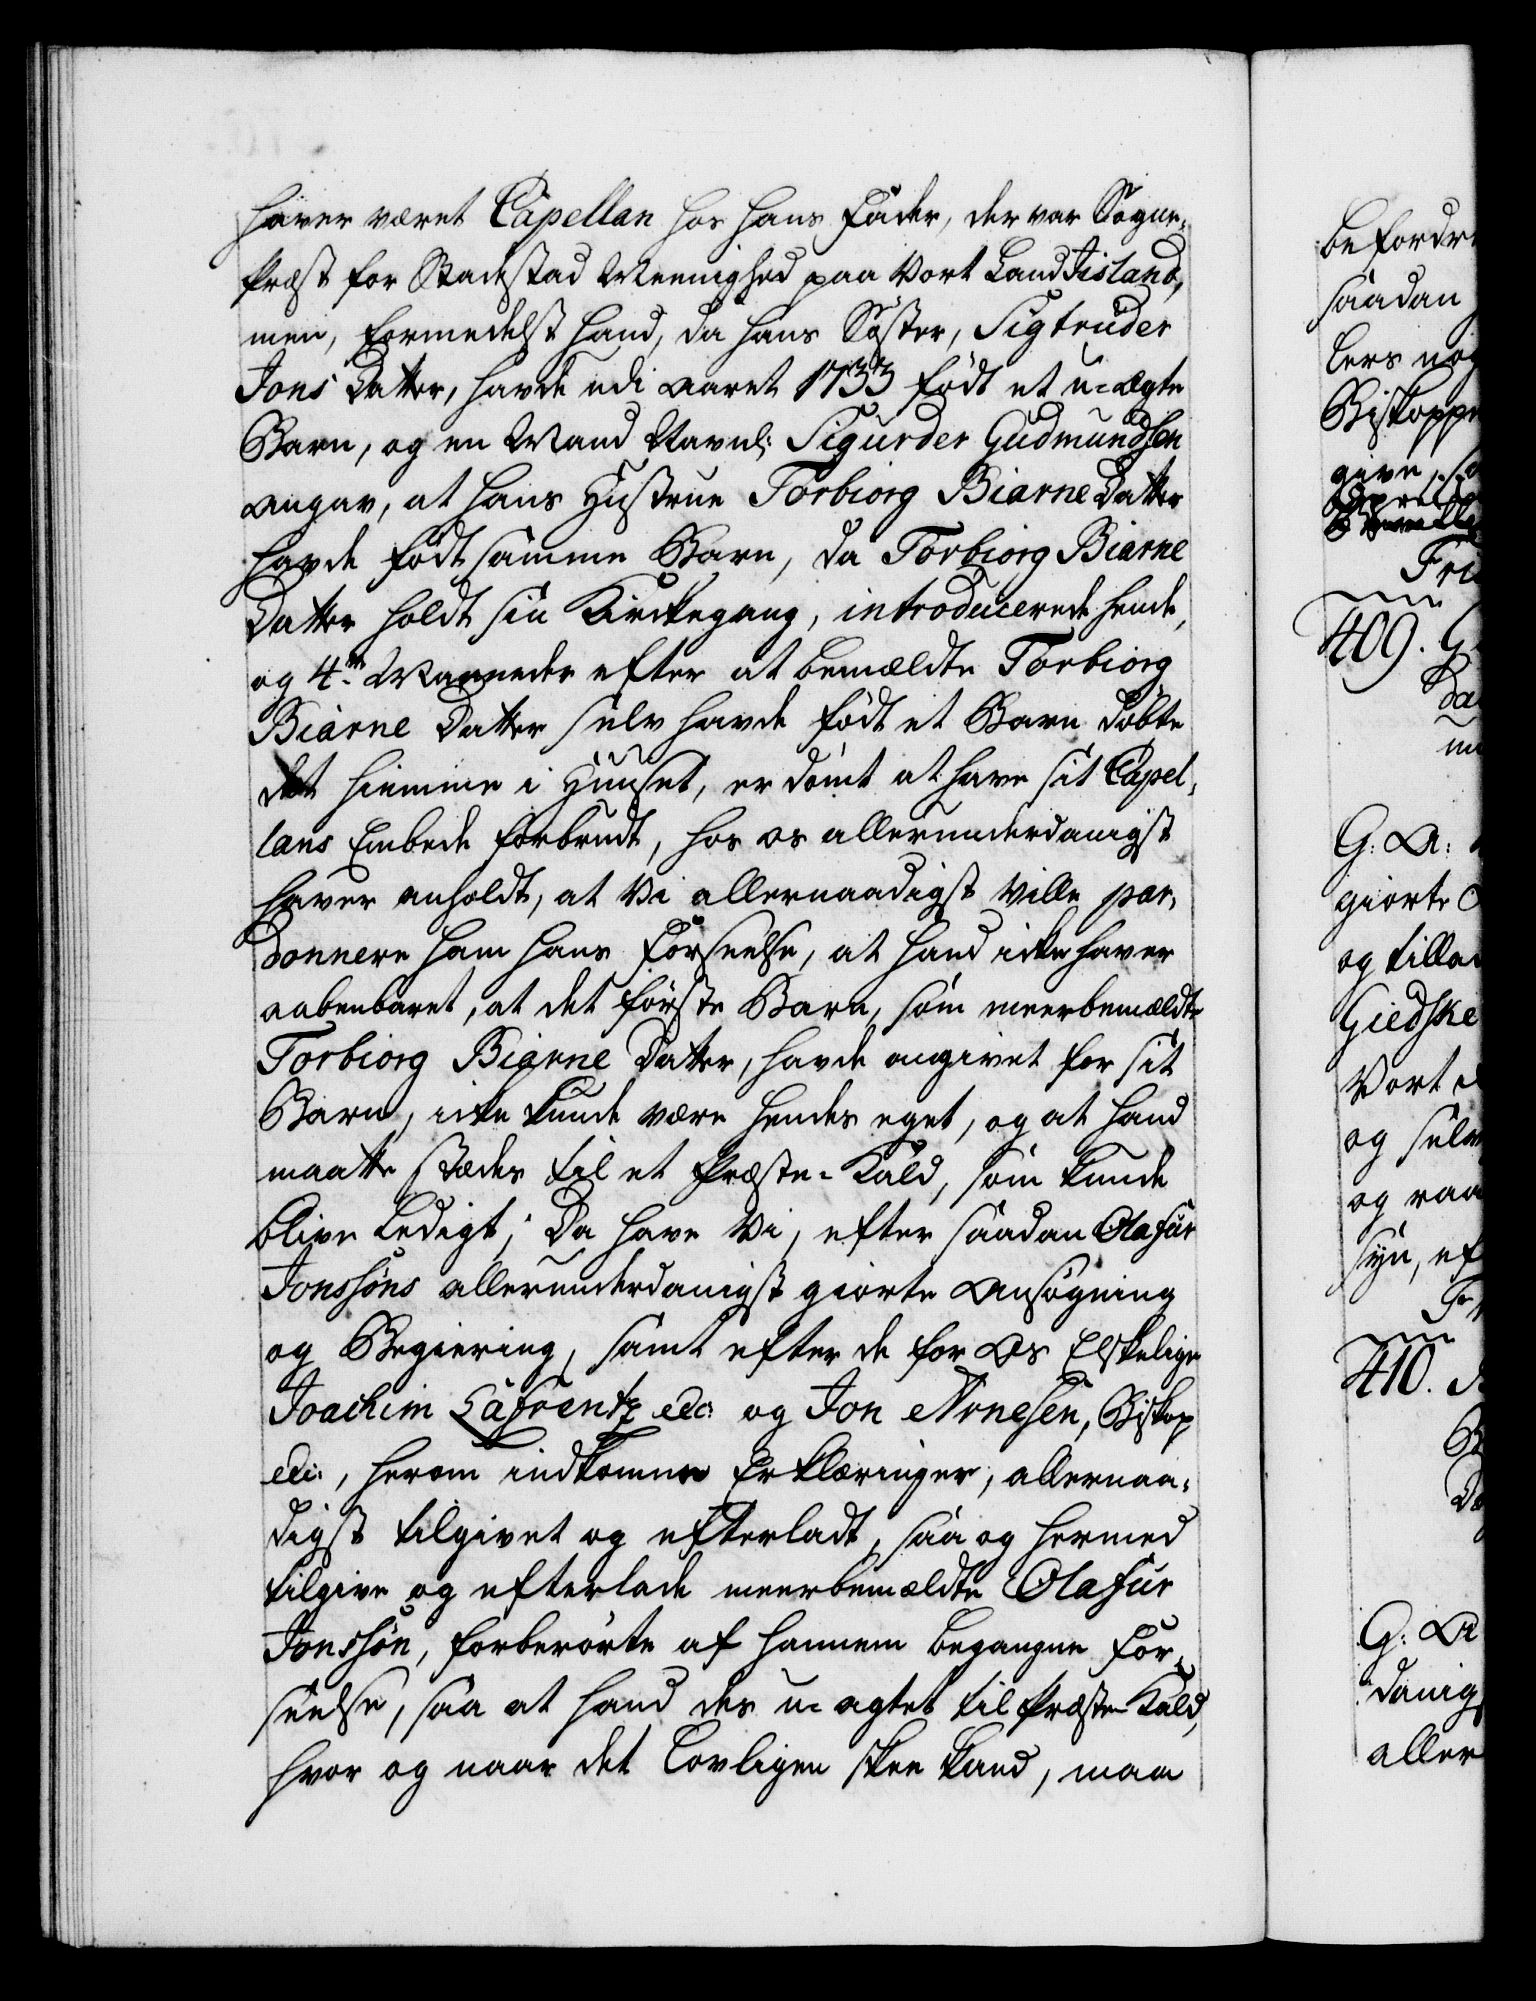 haver været Capellan hos hans Fader, der var Sogne-
Præst for Stadestad Meenighed paa Vort Land Jisland,
men, formedelst hand, da hans Søster, Sigtruder
Jons Datter, havde udi Aaret 1733 født et u-ægte
Barn, og en Mand Navnl: Sigurder Gudmundsen
angav, at hans Hustrue Torbiorg Biarne Datter
havde født samme Barn, da Torbiorg Biarne
Datter holdt sin Kirckegang, introducerede hende,
og 4re Maaneder efter at bemældte Torbiorg
Biarne Datter selv havde født et Barn døbte
det hiemme i Huuset, er dømt at have sit Capel-
lans Embede forbrudt, hos os allerunderdanigst
haver anholdt, at Vi allernaadigst ville par-
donnere ham hans Forseelse, at hand icke haver
aabenbaret, at det første Barn, som meerbemældte
Torbiorg Biarne Datter, havde angivet for sit
Barn, icke kunde være hendes eget, og at hand
maatte stædes til et Præste-Kald, som kunde
blive ledigt; Da have Vi, efter saadan Olafur
Jonssøns allerunderdanigst giorte Ansøgning
og Begiering, samt efter de for Os Elskelige
Joachim Lafrentz etc: og Jon Arnesen, Biskop
etc:, herom indkomne Erklæringer, allernaa-
digst tilgivet og efterladt, saa og hermed
tilgive og efterlade meerbemældte Olafur
Jonssøn, forberørte af hannem begangne For-
seelse, saa at hand des u-agtet til Præste-Kald,
hvor og naar det lovligen skee kand, maa
befordre
saadan
lers nog
Biskoppe
give, so
April
Fri
409. G
Da
G: A:
giorte
og tillad
Giedske
Vort
og selv
og raa
syn, ef
Fr
410.
G: A
danig
aller